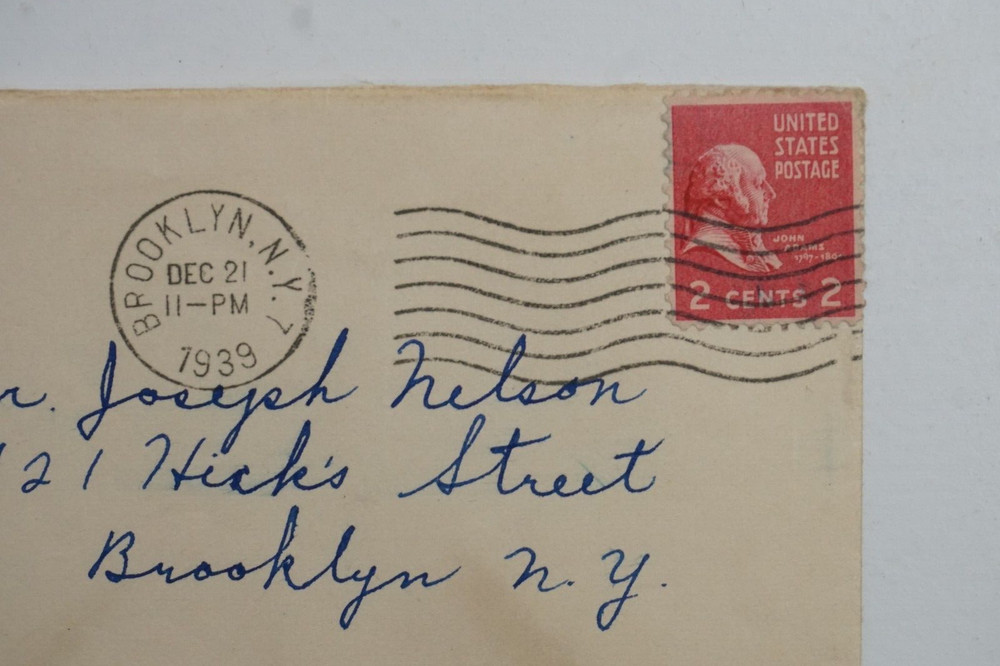 BROOKLYN, N.Y. 7
DEC 21
11-PM
1939
UNITED
STATES
POSTAGE
JOHN
ADAMS
2 CENTS 2
Joseph Nelson
21 Hick's Street
Brooklyn N.Y.